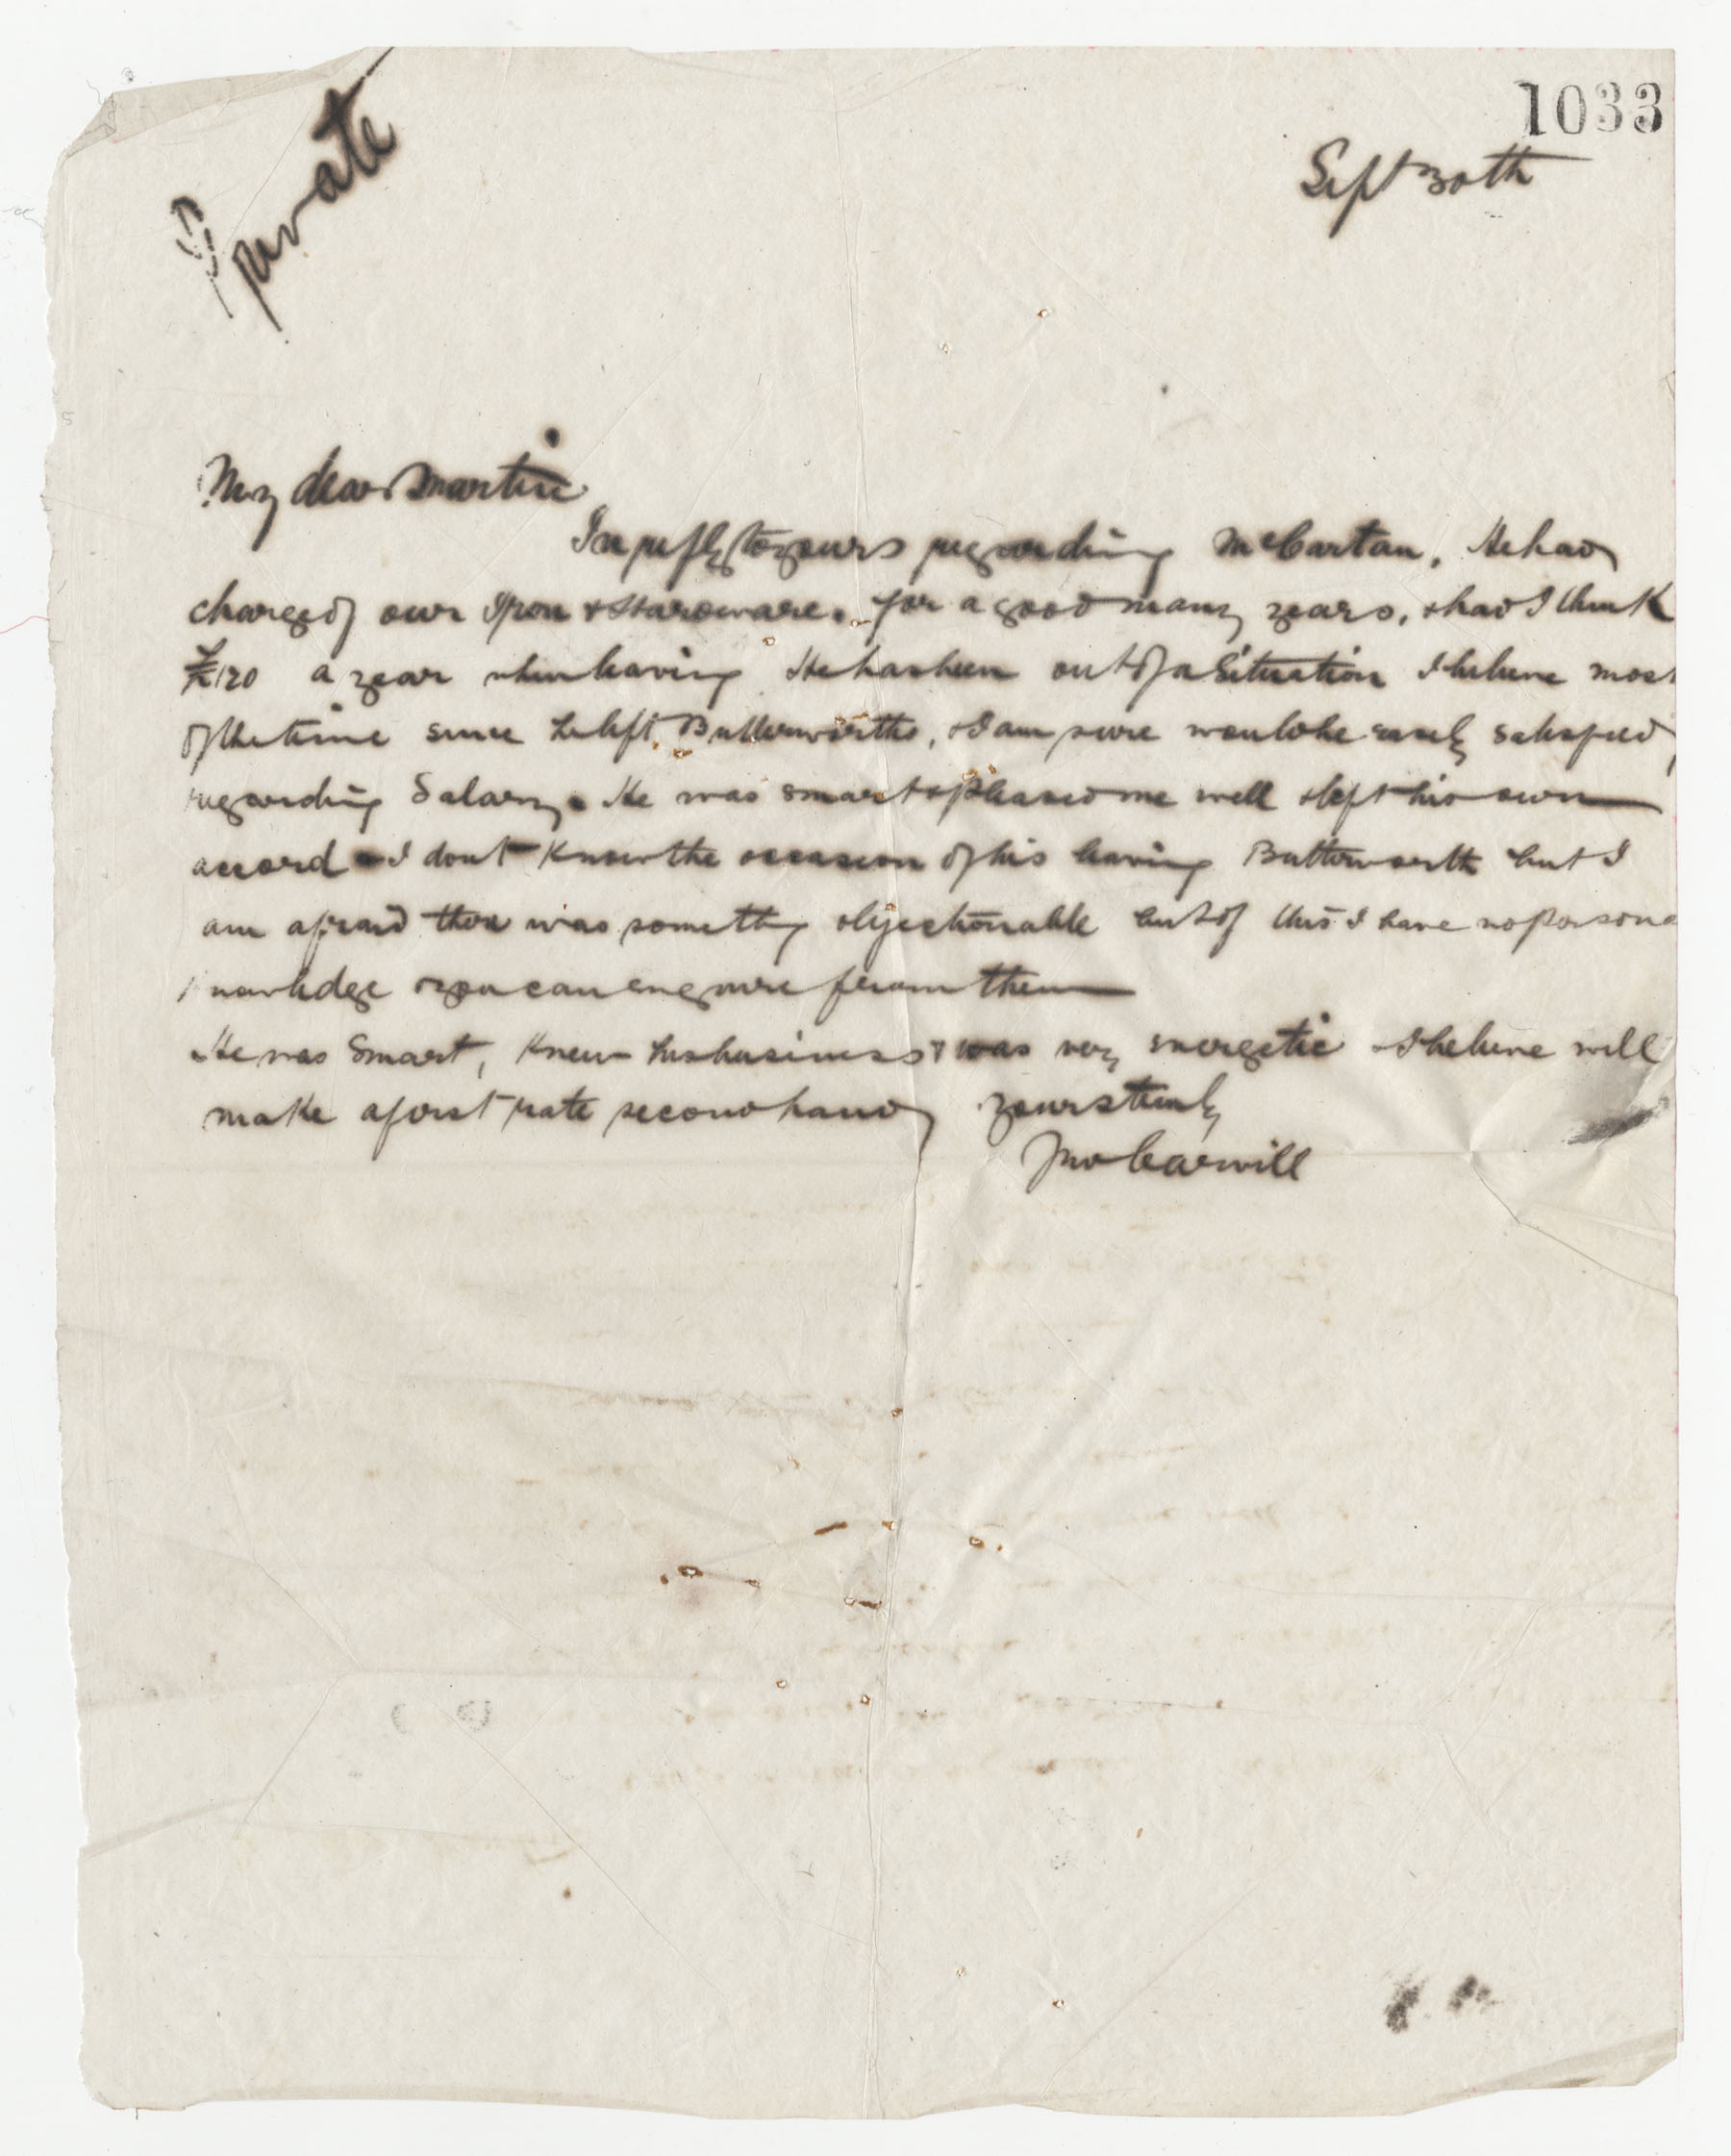 1033
Private
Sept 30th
My dear Martin
In reply to yours regarding McCartan. He had
charge of our Iron & Hardware. for a good many years, & had I think
£120 a year when leaving He has been out of a Situation I believe most
of the time since he left Butterworths, & I am sure would be easily satisfied
regarding Salary. He was smart & pleased me well & left his own
accord - I dont Know the occasion of his leaving Butterworth but I
am afraid there was something objectionable but of this I have no persona
nowledge & you can enquire from them
He was Smart, Knew his business & was very energetic & I believe will
make a first rate second hand yours truly
Jno Carwill